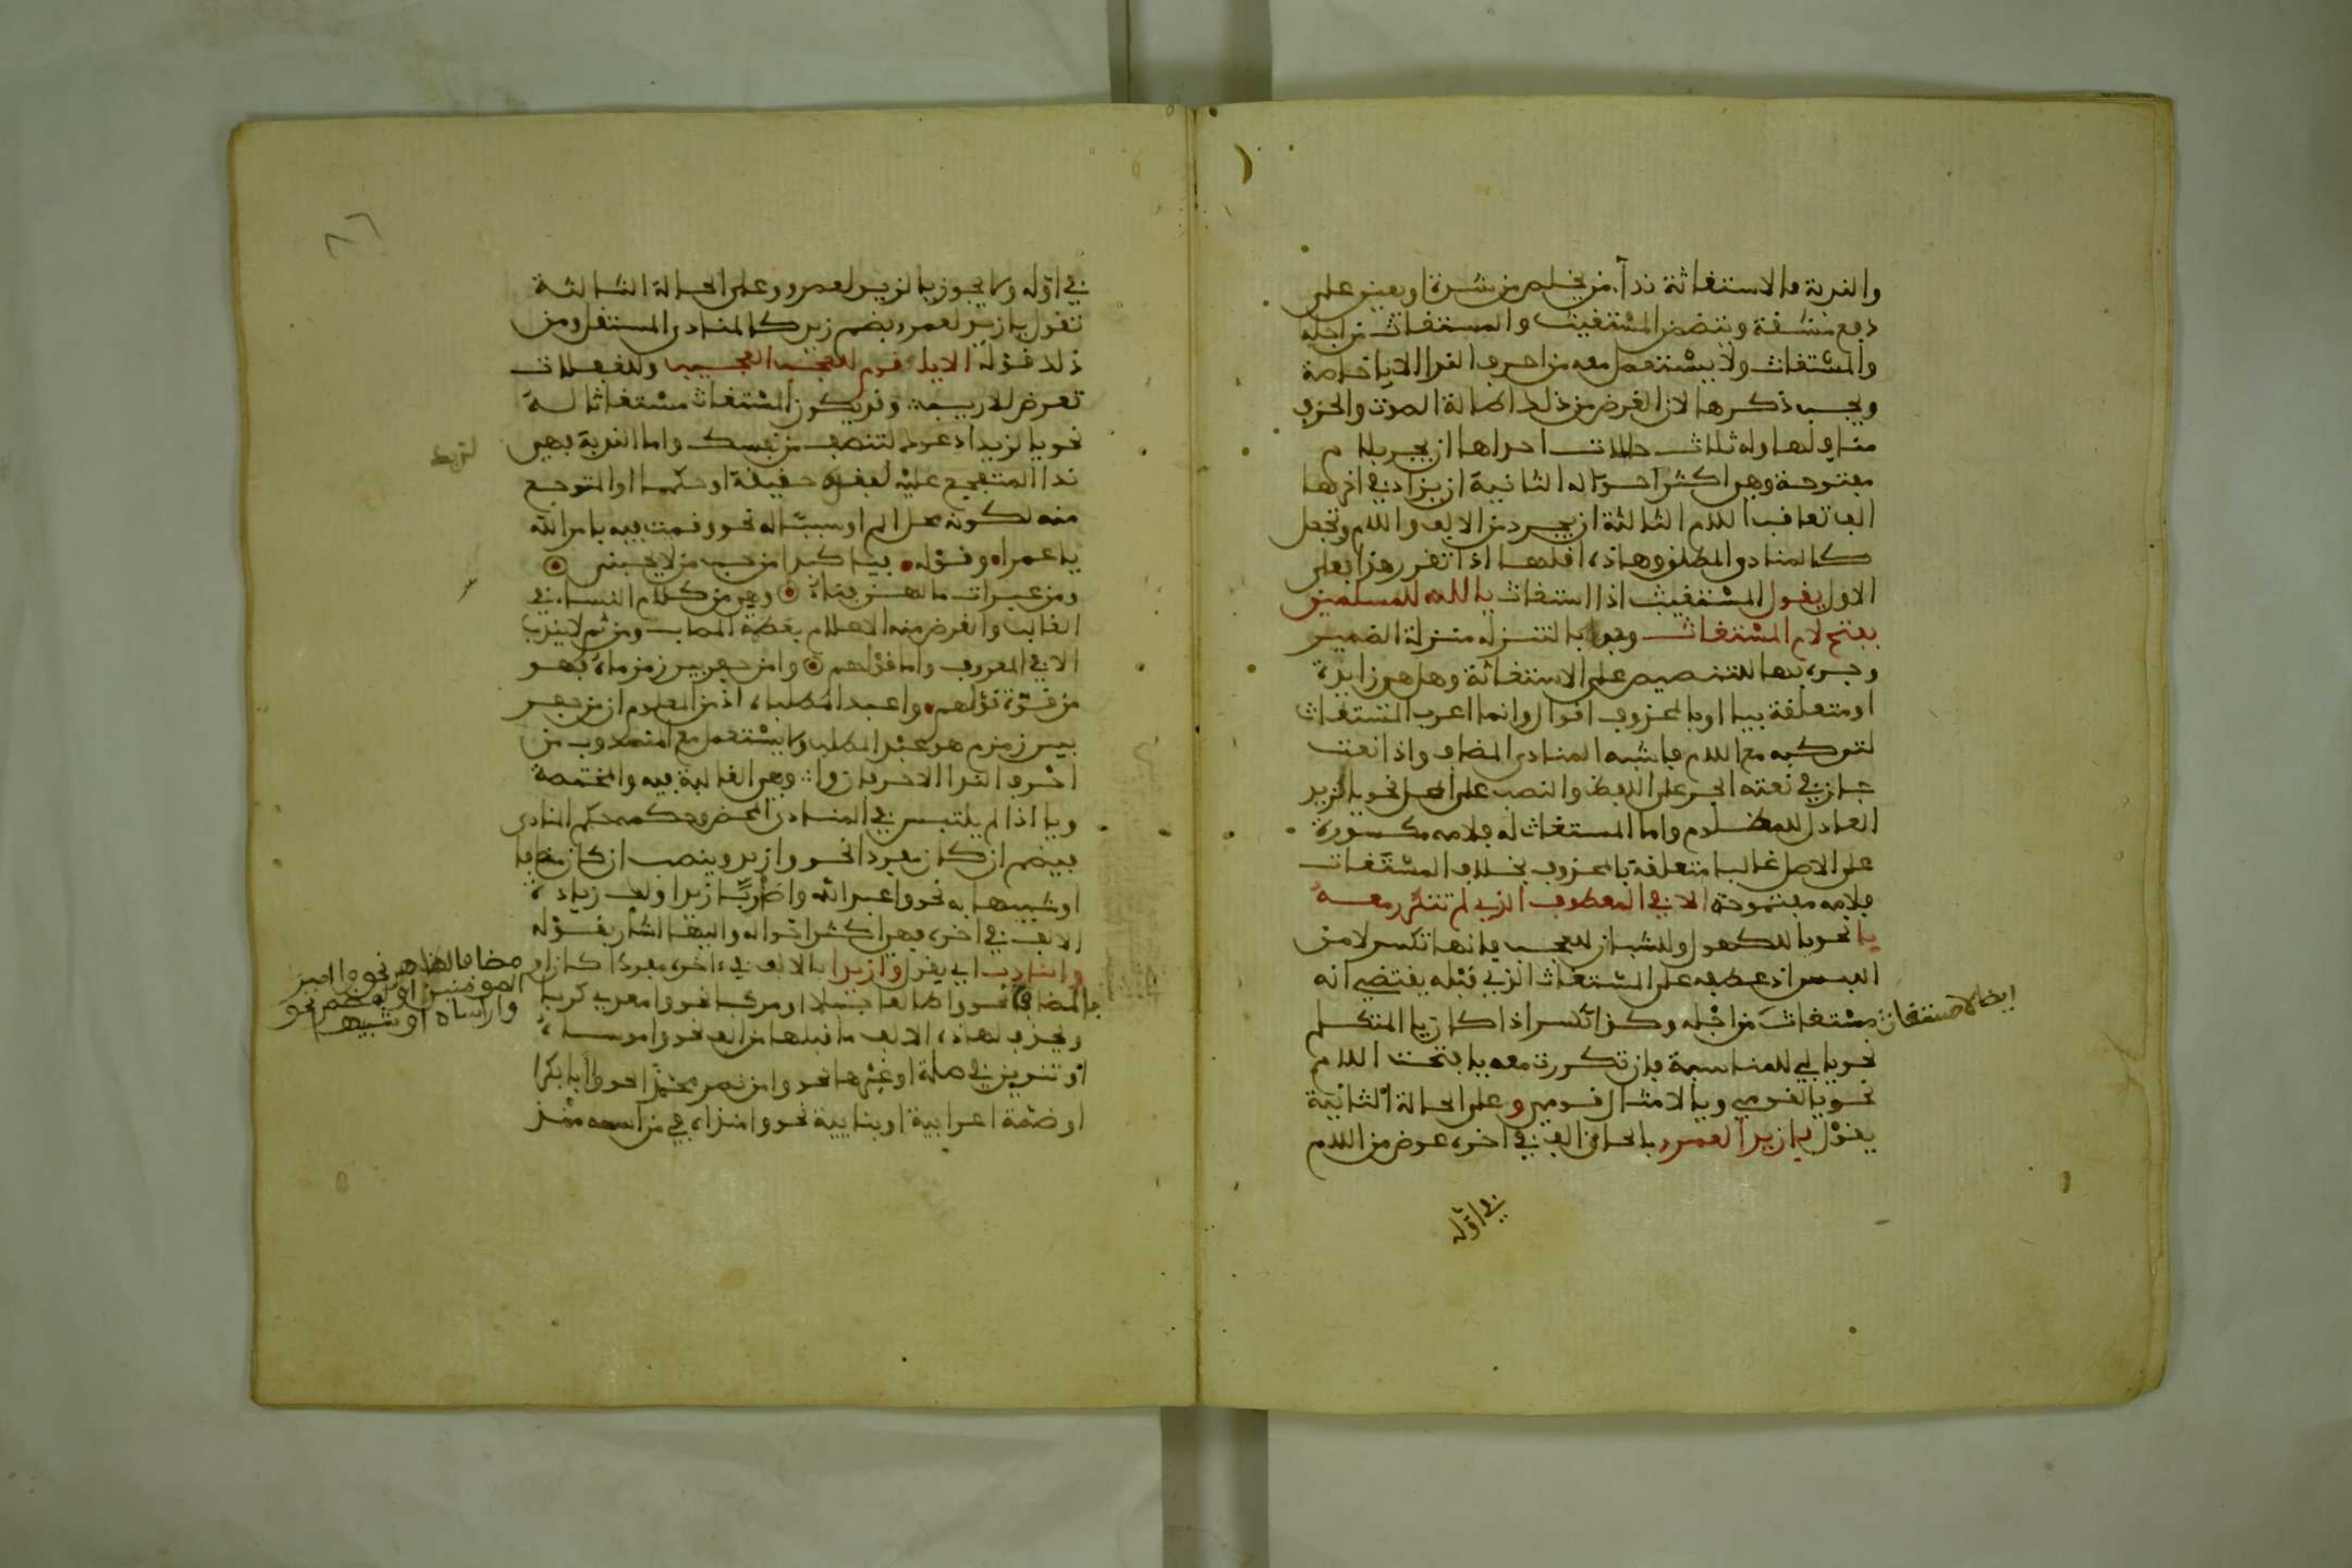 والندبة فالاستغاثة نداء من يخلص من شدة او يعين على
دفع مشقة ويتضمن المستغيث والمستغاث من اجله
والمستغاث ولا يستعمل معه من احرف الندا الا يا خاصة
ويجب ذكرها لان الغرض من ذلك اطالة الصوت والحذف
مناف لها وله ثلاث حالات احداها ان يجر بلام
مفتوحة وهي اكثر احواله الثانية ان يزاد في اخرها
الف تعاقب اللام الثالثة ان يجرد من الالف واللام وتجعل
كالمنادى المطلق وهذه اقلها اذا تقرر هذا فعلى
الاول يقول المستغيث اذا استغاث يا لله للمسلمين
بفتح لام المستغاث وجوبا لتنزله منزلة الضمير
وجره بها للتنصيص على الاستغاثة وهل هي زايدة
او متعلقة بيا او بمحذوف اقوال وانما اعرب المستغاث
لتركبه مع اللام فاشبه المنادى المضاف واذا نعت
جاز في نعته الجر على اللفظ والنصب على المحل نحو يا لزيد
العادل للمظلوم واما المستغاث له فلامه مكسورة
على الاصل غالبا متعلقة بمحذوف بخلاف المستغاث
فلامه مفتوحة الا في المعطوف الذي لم تتكرر معه
يا نحو يا للكهول وللشبان للعجب فانها تكسر لامن
اللبس اذ عطفه على المستغاث الذي قبله يقتضي انه
ايضا لا مستغاث
مستغاث من اجله وكذا تكسر اذا كان يا المتكلم
نحو يا لي للمناسبة فان تكررت معه يا فتحت اللام
نحو يا لقومي ويا لامثال قومي وعلى الحالة الثانية
يقول يا زيدا لعمرو بالحاق الف في اخره عوض من اللام
في اوله
في اوله ولا يجوز يا لزيدا لعمرو وعلى الحالة الثالثة
تقول يا زيد لعمرو بضم زيد كالمنادى المستقل ومن
ذلك قوله الا يا قوم للعجب العجيب وللغفلات
تعرض للاريب وقد يكون المستغاث مستغاثا له
نحو يا لزيد لزيد ادعوك لتنصف من نفسك واما الندبة فهي
ندا المتفجع عليه لفقده حقيقة او حكما او المتوجع
منه لكونه محل الم او سببا له نحو وقمت فيه بامر الله
يا عمرا وقوله فيا كبدا من حب من لا يحبني
ومن عبرات ما لهن فناء وهي من كلام النساء في
الغالب والغرض منه الاعلام بعظمة المصاب ومن ثم لا يندب
الا في المعروف واما قولهم وا من حفر بير زمزماه فهو
من قوة قولهم وا عبد المطلباه اذ من المعلوم ان من حفر
بير زمزم هو عبد المطلب ولا يستعمل مع المندوب من
احرف الندا الا حرفان وا وهي الغالبة فيه والمختصة
ويا اذا لم يلتبس في المنادى المحض وحكمه حكم المنادى
فيضم ان كان مفردا نحو وا زيد وينصب ان كان مضافا
او شبيها به نحو وا عبد الله وا ضاربا زيدا ولك زيادة
الالف في اخره وهي اكثر احواله واليها اشار بقوله
والنادب اي يقول وا زيدا بالالف في اخره مفردا كان ام
مضافا لظاهر نحو وا امير
المومنين او لمضمر نحو
وا راساه او شبيها
بالمضاف نحو وا طالعا جبلا او مركبا نحو وا معدي كربا
ويحذف لهذه الالف ما قبلها من الف نحو وا موساه
او تنوين في صلة او غيرها نحو وا من نصر محمدا نحو وا ابا بكرا
او ضمة اعرابية او بنايية نحو وا منذاه في من اسمه منذ